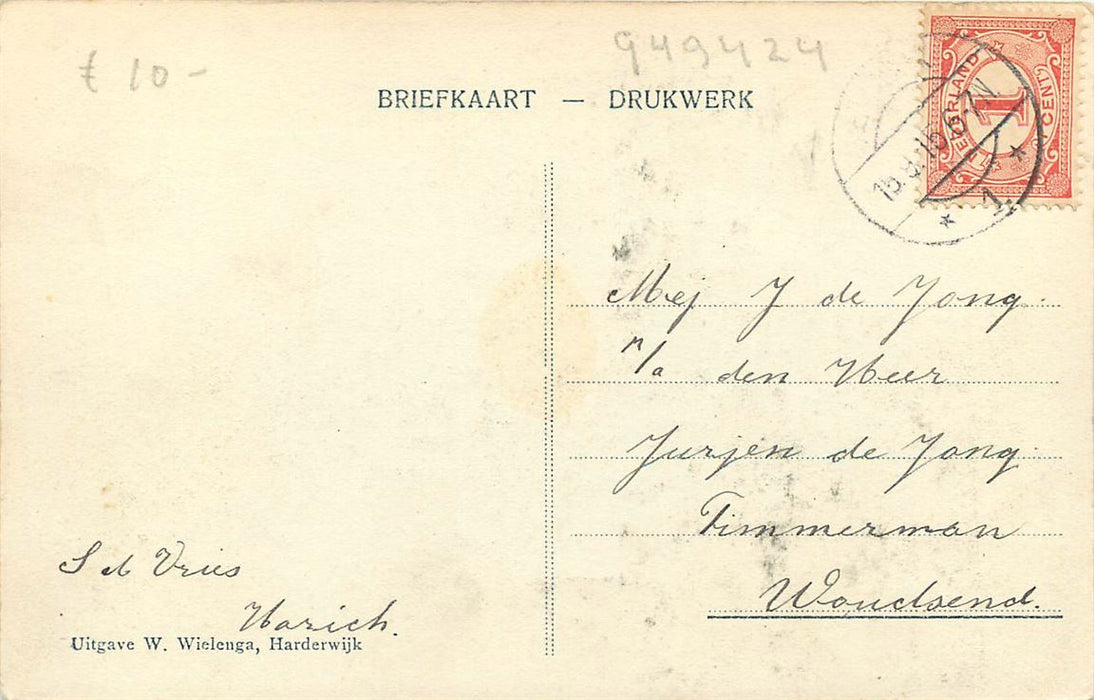 £ 10 -
949424
BRIEFKAART — DRUKWERK
NEDERLAND
1
CENT
15.8.15 6-7N
1.
Mej J de Jong.
p/a den Heer
Jurjen de Jong.
Timmerman
Woudsend.
S d Vries
Harich.
Uitgave W. Wielenga, Harderwijk